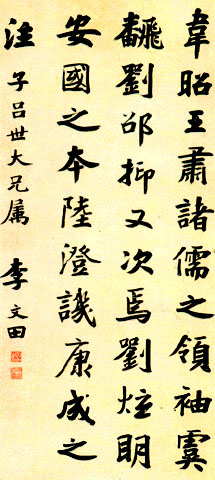 韋昭王肅諸儒之領袖虞
翻劉邵抑又次焉劉炫明
安國之本陸澄譏康成之
注 子呂世大兄属 李文田